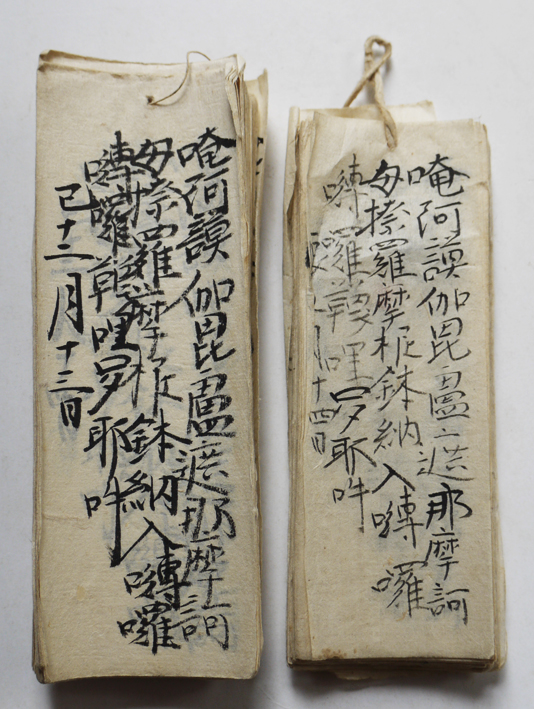 唵阿謨伽毘盧遮那摩訶
母捺羅摩抳鉢納入嚩囉
嚩囉韈哩多耶吽
己十二月十三日
唵阿謨伽毘盧遮那摩訶
母捺羅摩抳鉢納入嚩囉
嚩囉韈哩多耶吽
月十四日